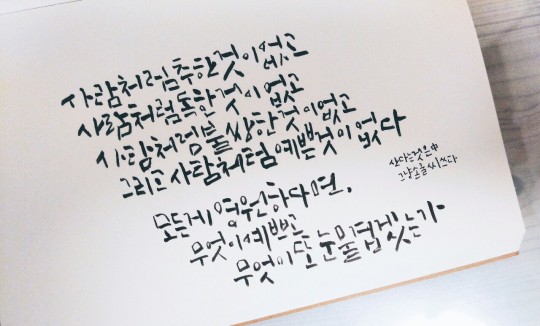 사람처럼 추한것이 없고
사람처럼 독한것이 없고
사람처럼 불쌍한것이 없고
그리고 사람처럼 예쁜것이 없다
모든게 영원하다면,
무엇이 예쁘고
무엇이 또 눈물겹겠는가
산다는것은 中
그냥손글씨쓰다